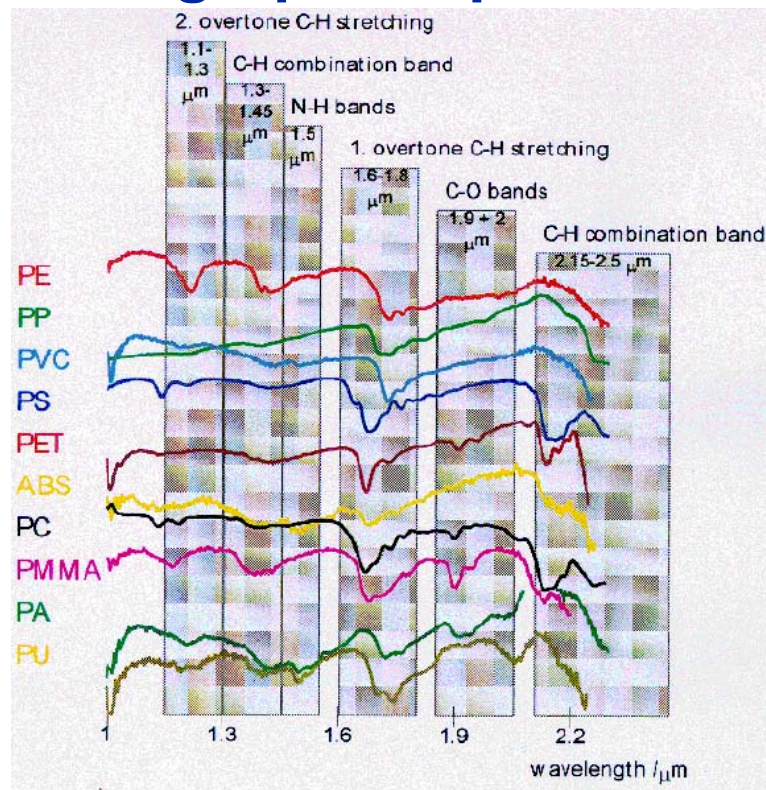 2. overtone C-H stretching
1.1-
1.3
μm
C-H combination band
1.3-
1.45
μm
N-H bands
1.5
μm
1. overtone C-H stretching
1.6-1.8
μm
C-O bands
1.9 + 2
μm
C-H combination band
2.15-2.5 μm
PE
PP
PVC
PS
PET
ABS
PC
PMMA
PA
PU
1 1.3 1.6 1.9 2.2
wavelength /μm